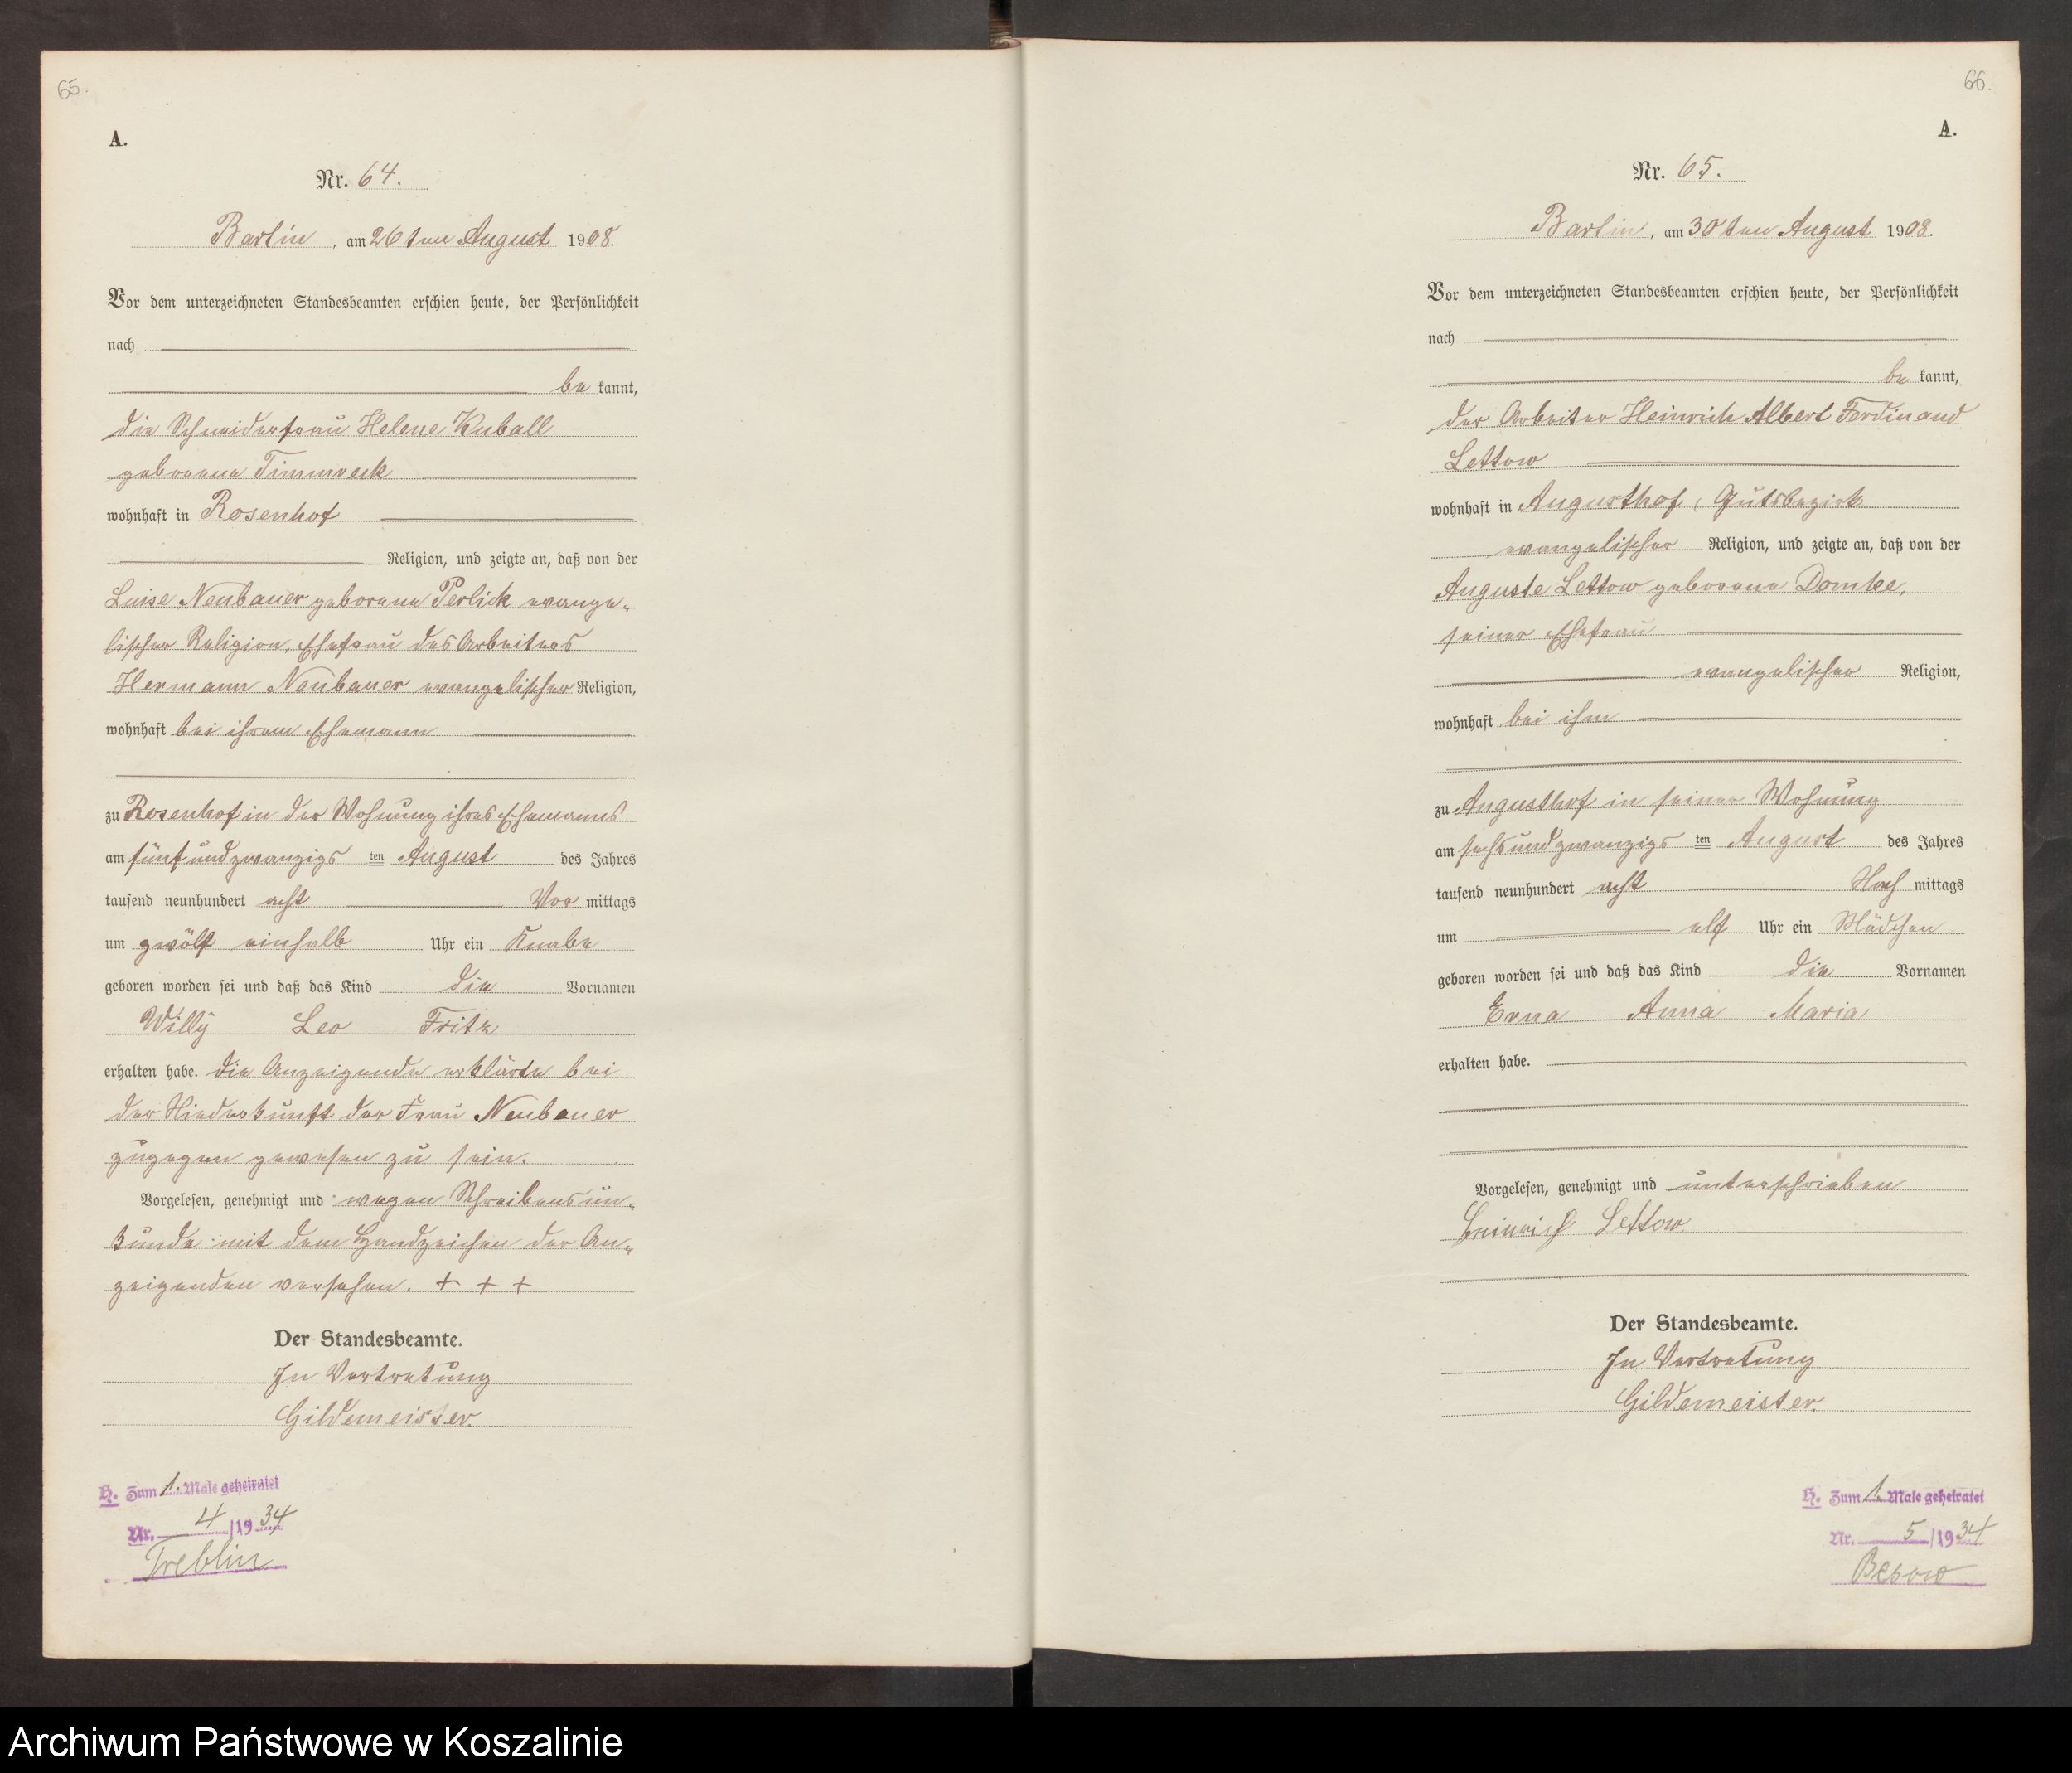 65.
A.
Nr. 64.
Bartin, am 26ten August 1908.
Vor dem unterzeichneten Standesbeamten erschien heute, der Persönlichkeit
nach
be kannt,
die Schneiderfrau Helene Kuball
geborene Timmreck
wohnhaft in Rosenhof
Religion, und zeigte an, daß von der
Luise Neubauer geborene Perlick evange-
lischer Religion, Ehefrau des Arbeiters
Hermann Neubauer evangelischer Religion,
wohnhaft bei ihrem Ehemann
zu Rosenhof in der Wohnung ihres Ehemanns
am fünfundzwanzigs ten August des Jahres
tausend neunhundert acht Vor mittags
um zwölf einhalb Uhr ein Knabe
geboren worden sei und daß das Kind die Vornamen
Willy Leo Fritz
erhalten habe. Die Anzeigende erklärte bei
der Niederkunft der Frau Neubauer
zugegen gewesen zu sein.
Vorgelesen, genehmigt und wegen Schreibensun-
kunde mit dem Handzeichen der An-
zeigenden versehen. + + +
Der Standesbeamte.
In Vertretung
Gildemeister.
H. Zum 1. Male geheiratet
Nr. 4 /1934
Treblin
66.
A.
Nr. 65.
Bartin, am 30ten August 1908.
Vor dem unterzeichneten Standesbeamten erschien heute, der Persönlichkeit
nach
be kannt,
der Arbeiter Heinrich Albert Ferdinand
Lettow
wohnhaft in Augusthof, Gutsbezirk
evangelischer Religion, und zeigte an, daß von der
Auguste Lettow geborene Domke,
seiner Ehefrau
evangelischer Religion,
wohnhaft bei ihm
zu Augusthof in seiner Wohnung
am sechsundzwanzigs ten August des Jahres
tausend neunhundert acht Nach mittags
um elf Uhr ein Mädchen
geboren worden sei und daß das Kind die Vornamen
Erna Anna Maria
erhalten habe.
Vorgelesen, genehmigt und unterschrieben
Heinrich Lettow
Der Standesbeamte.
In Vertretung
Gildemeister.
H. Zum 1. Male geheiratet
Nr. 5 /1934
Besow
Archiwum Państwowe w Koszalinie